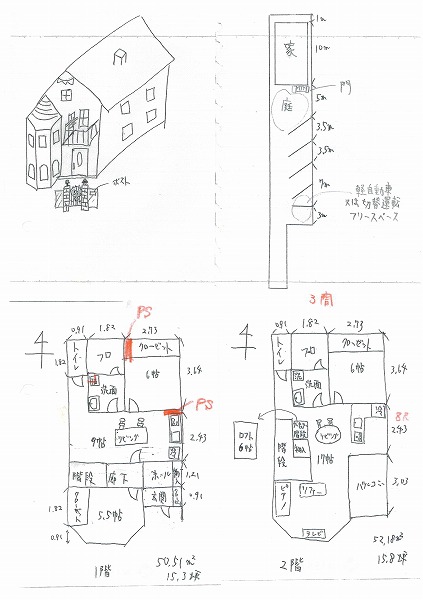 ポスト
1m
家
10m
門
庭
5m
3.5m
3.5m
7m
軽自動車
又は切替運転
フリースペース
3m
PS
0.91
1.82
2.73
トイレ
フロ
クローゼット
1.82
洗面
6帖
3.64
PS
9帖
リビング
2.43
階段
廊下
ホール
1.21
玄関
0.91
クローゼット
5.5帖
1.82
0.91
1階
50.51m²
15.3坪
3間
0.91
1.82
2.73
トイレ
フロ
クローゼット
洗面
6帖
3.64
ロフト
6帖
階段
リビング
17帖
8尺
2.43
ピアノ
ソファー
バルコニー
3.03
テレビ
2階
52.18m²
15.8坪